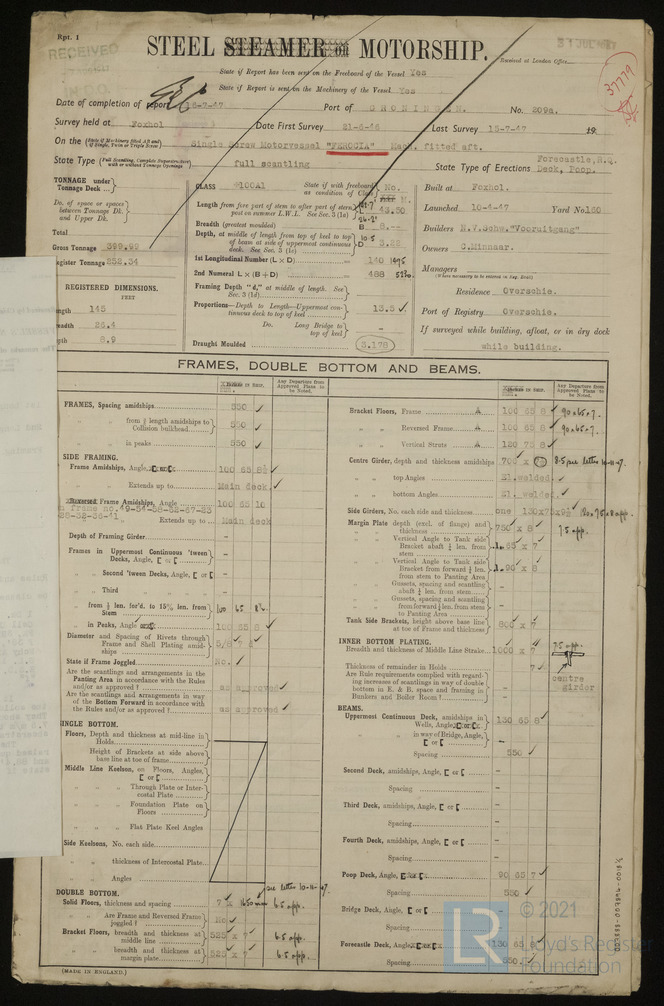 Rpt. 1
RECEIVED
31 JUL 1947
STEEL STEAMER or MOTORSHIP.
Received at London Office
State if Report has been sent on the Freeboard of the Vessel Yes
State if Report is sent on the Machinery of the Vessel Yes
37779
Date of completion of report 16-7-47 Port of GRONINGEN. No. 209a.
Survey held at Foxhol Date First Survey 21-6-46 Last Survey 15-7-47 19
On the (State if Machinery fitted Aft and if Single, Twin or Triple Screw) Single Screw Motorvessel "FEROCIA" Mach. fitted aft.
State Type (Full Scantling, Complete Superstructure with or without Tonnage Openings) full scantling State Type of Erections Forecastle, R.Q. Deck, Poop.
TONNAGE under Tonnage Deck
Do. of space or spaces between Tonnage Dk. and Upper Dk.
Total
Gross Tonnage 399.69
Register Tonnage 252.34
REGISTERED DIMENSIONS.
FEET
Length 145
Breadth 26.4
Depth 8.9
CLASS 100A1 State if with freeboard as condition of Class No.
Length from fore part of stem to after part of stern post on summer L.W.L. See Sec. 3 (1a) L 43.50
Breadth (greatest moulded) B 8.--
Depth, at middle of length from top of keel to top of beam at side of uppermost continuous deck. See Sec. 3 (1c) D 3.22
1st Longitudinal Number (L × D) 140
2nd Numeral L × (B + D) 488
Framing Depth "d," at middle of length. See Sec. 3 (1d)
Proportions—Depth to Length—Uppermost continuous deck to top of keel 13.5 ✓
Do. Long Bridge to top of keel -
Draught Moulded 3.178
Built at Foxhol.
Launched 10-4-47 Yard No. 160
Builders N.V. Schw. "Vooruitgang"
Owners C. Minnaar.
Managers
(Where necessary to be entered in Reg. Book)
Residence Overschie.
Port of Registry Overschie.
If surveyed while building, afloat, or in dry dock
while building.
FRAMES, DOUBLE BOTTOM AND BEAMS.
Any Departure from Approved Plans to be Noted.
FRAMES, Spacing amidships 550 ✓
from ⅕ length amidships to Collision bulkhead 550 ✓
in peaks 550 ✓
SIDE FRAMING.
Frame Amidships, Angle 100 65 8½ ✓
Extends up to Main deck ✓
Reversed Frame Amidships, Angle 100 65 10
Extends up to Main deck
Depth of Framing Girder -
Frames in Uppermost Continuous 'tween Decks, Angle, [ or [ -
Second 'tween Decks, Angle, [ or [ -
Third -
from ⅕ len. for'd. to 15% len. from Stem 100 65 8½
in Peaks, Angle 100 65 8 ✓
Diameter and Spacing of Rivets through Frame and Shell Plating amidships 5/8
State if Frame Joggled No. ✓
Are the scantlings and arrangements in the Panting Area in accordance with the Rules and/or as approved? as approved ✓
Are the scantlings and arrangements in way of the Bottom Forward in accordance with the Rules and/or as approved? as approved ✓
SINGLE BOTTOM.
Floors, Depth and thickness at mid-line in Holds
Height of Brackets at side above base line at toe of frame
Middle Line Keelson, on Floors, Angles, [ or [
Through Plate or Intercostal Plate
Foundation Plate on Floors
Flat Plate Keel Angles
Side Keelsons, No. each side
thickness of Intercostal Plate
Angles
see letter 10-11-47.
DOUBLE BOTTOM.
Solid Floors, thickness and spacing 7 × 1650 mm 6.5 app.
Are Frame and Reversed Frame joggled? No ✓
Bracket Floors, breadth and thickness at middle line 525 × 7 6.5 app.
breadth and thickness at margin plate 525 × 7 6.5 app.
(MADE IN ENGLAND.)
Bracket Floors, Frame 100 65 8 ✓ 90×65×7.
Reversed Frame 100 65 8 ✓ 90×65×7.
Vertical Struts 120 75 8 ✓
Centre Girder, depth and thickness amidships 700 × 8.5 per letter 10-11-47.
top Angles El. welded. ✓
bottom Angles El. welded. ✓
Side Girders, No. each side and thickness one 130×75×9½
Margin Plate depth (excl. of flange) and thickness 750 × 8 7.5 app.
Vertical Angle to Tank side Bracket abaft ¼ len. from stem 65 × 7 ✓
Vertical Angle to Tank side Bracket from forward ¼ len. from stem to Panting Area 90 × 8 ✓
Gussets, spacing and scantling abaft ¼ len. from stem -
Gussets, spacing and scantling from forward ¼ len. from stem to Panting Area -
Tank Side Brackets, height above base line at toe of Frame and thickness 800 × 7 ✓
INNER BOTTOM PLATING.
Breadth and thickness of Middle Line Strake 1000 × 7 7.5 app.
Thickness of remainder in Holds 7 ✓
centre girder
Are Rule requirements complied with regarding increases of scantlings in way of double bottom in E. & B. space and framing in Bunkers and Boiler Room? -
BEAMS.
Uppermost Continuous Deck, amidships in Wells, Angle 130 65 8 ✓
in way of Bridge, Angle, [ or [ -
Spacing 550 ✓
Second Deck, amidships, Angle, [ or [ -
Spacing
Third Deck, amidships, Angle, [ or [ -
Spacing
Fourth Deck, amidships, Angle, [ or [ -
Spacing
Poop Deck, Angle 90 65 7 ✓
Spacing 550 ✓
Bridge Deck, Angle, [ or [ -
Spacing
Forecastle Deck, Angle 130 65
Spacing 550
LR
© 2021
Lloyd's Register
Foundation